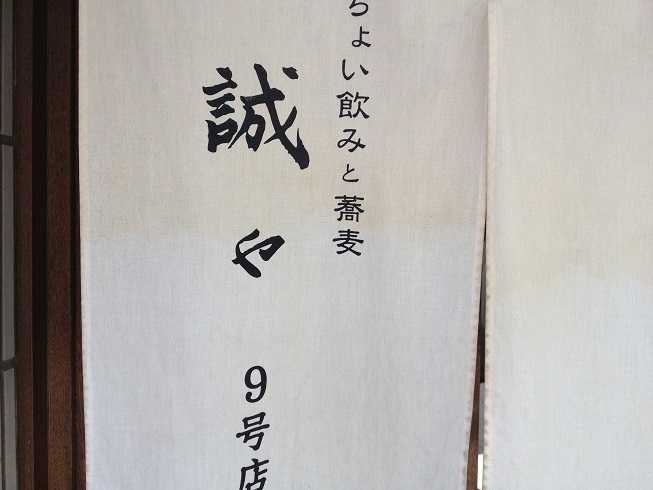 ちょい飲みと蕎麦
誠や
9号店